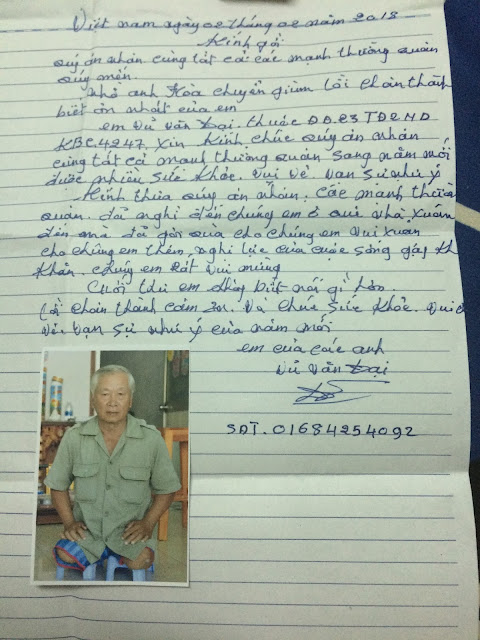 Việt nam ngày 02 tháng 02 năm 2018
Kính gởi
quý ân nhân cùng tất cả các mạnh thường quân
quý mến.
Nhờ anh Hoà chuyển giùm lời chân thành
biết ơn nhất của em
em Vũ văn Đại thuộc Đ.Đ.23 TĐ2ND
KBC.4247. Xin Kính chúc quý ân nhân
cùng tất cả mạnh thường quân sang năm mới
được nhiều sức Khỏe. Vui Vẻ. Vạn Sự như ý
Kính thưa quý ân nhân. các mạnh thườn
quân. đã nghỉ đến chúng em ở quê nhà, xuân
đến mà đã gởi quà cho chúng em Vui xuân
cho chúng em thêm, nghị lực của cuộc sống gặp Kh
Khăn. chúng em Rất Vui mừng
Cuối thư em không biết nói gì hơn.
lời chân thành cảm ơn. Và chúc sức Khỏe. Vui v
Vẻ. Vạn sự như ý của năm mới
em của các anh
Vũ Văn Đại
SĐT. 01684254092